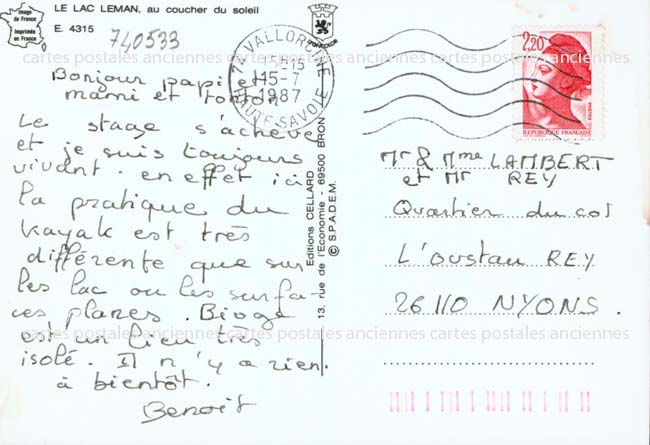 LE LAC LEMAN, au coucher du soleil
Image de France
Imprimée en France
E. 4315
740533
VALLORCINE
15H15
15-7
1987
HAUTE-SAVOIE
2,20
POSTES
REPUBLIQUE FRANÇAISE
cartes postales anciennes cartes postales anciennes cartes postales anciennes
Bonjour papi et
mami et tonton
Le stage s'achève
et je suis toujours
vivant. en effet ici
la pratique du
kayak est très
différente que sur
les lac ou les surfa-
ces planes. Bioge
est un lieu très
isolé. Il n'y a rien
à bientôt.
Benoit
Editions CELLARD
13, rue de l'Economie - 69500 BRON
© S.P.A.D.E.M.
Mr & Mme LAMBERT
et Mr REY
Quartier du col
L'oustau REY
26110 NYONS.
cartes postales anciennes cartes postales anciennes cartes postales anciennes